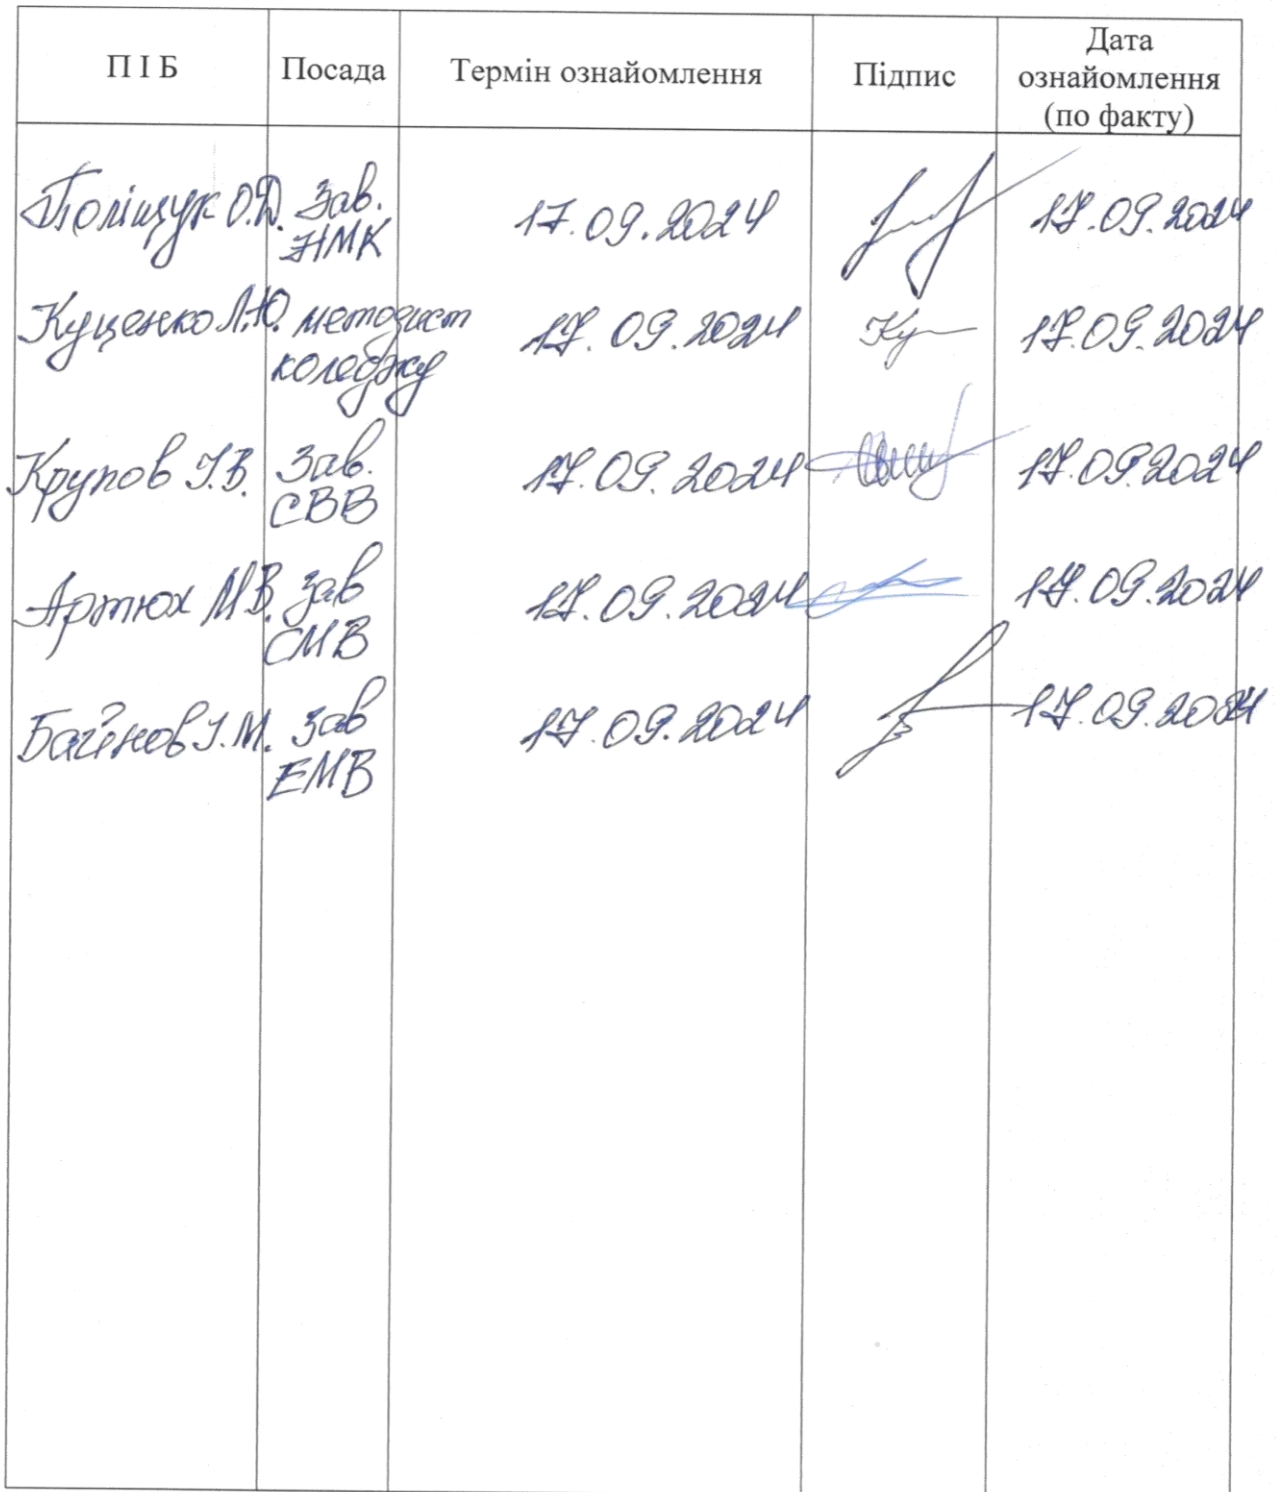 П І Б Посада Термін ознайомлення Підпис Дата ознайомлення (по факту)
Поліщук О.Д. Зав. 17.09.2024 17.09.2024
НМК
Куценко Л.Ю. методист 17.09.2024 Ку 17.09.2024
коледжу
Крупов І.В. Зав. 17.09.2024 17.09.2024
СВВ
Артюх М.В. Зав 17.09.2024 17.09.2024
СМВ
Баєнов І.М. Зав 17.09.2024 17.09.2024
ЕМВ